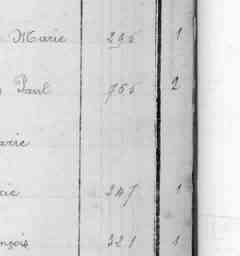 Marie 235 1
Paul 955 2
arie
rie 247 1
ançois 321 1